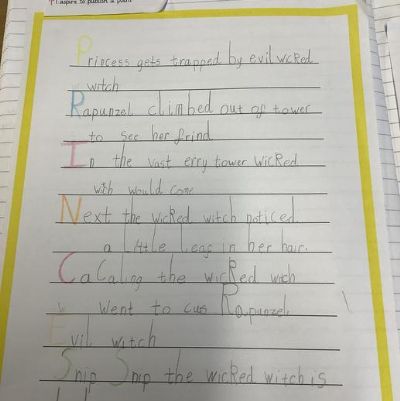 I aspire to publish a poem
Princess gets trapped by evil wicked
witch
Rapunzel climbed out of tower
to see her frind
In the vast erry tower wicked
with would come
Next the wicked witch noticed
a little leag in her hair.
CaCaling the wicRed witch
went to cus Rapunzel
Evil witch
Snip Snip the wicked witch is